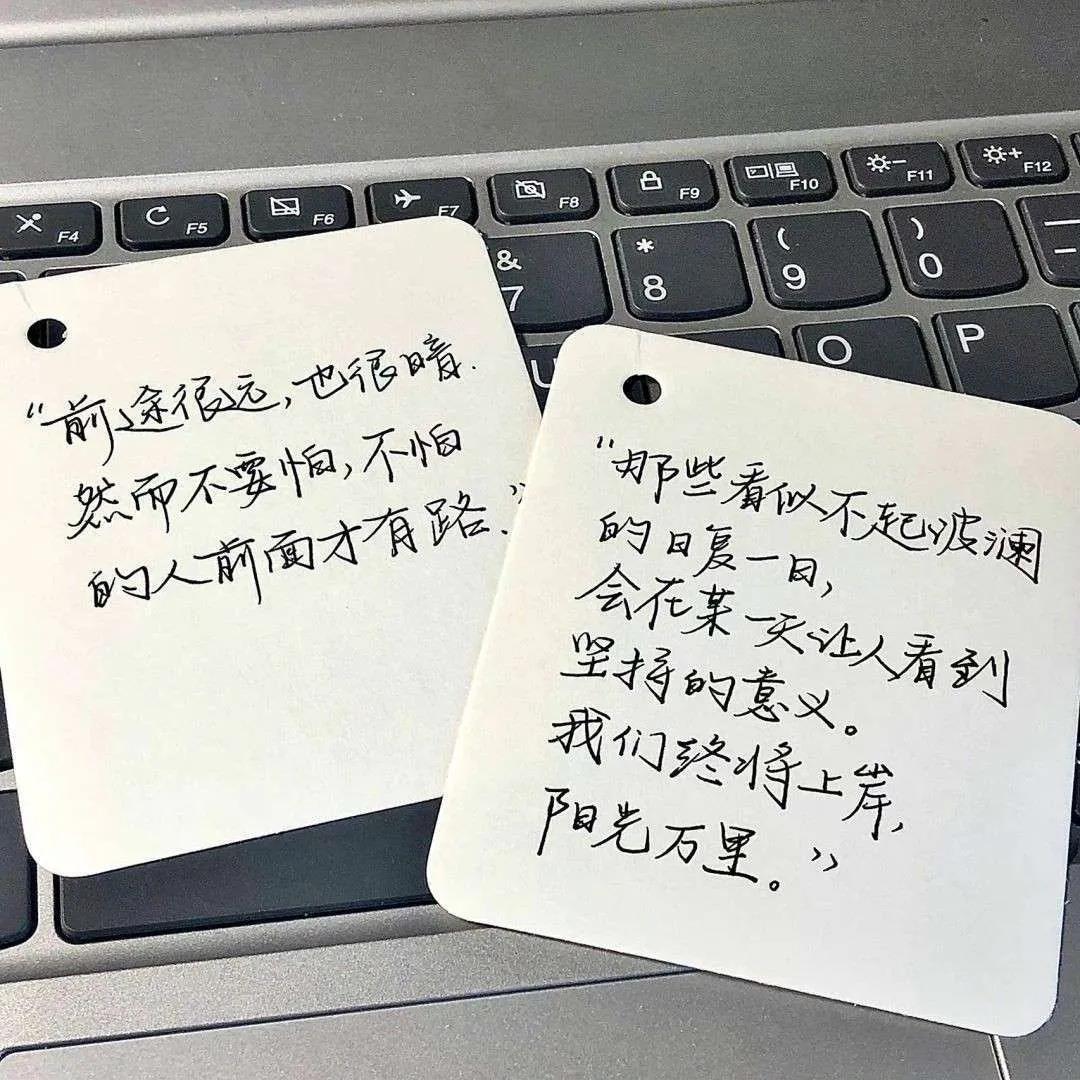 F4 F5 F6 F7 F8 F9 F10 F11 F12
& 7 * 8 ( 9 ) 0
U O P
“前途很远,也很暗.
然而不要怕,不怕
的人前面才有路.”
“那些看似不起波澜
的日复一日,
会在某一天让人看到
坚持的意义。
我们终将上岸,
阳光万里。”